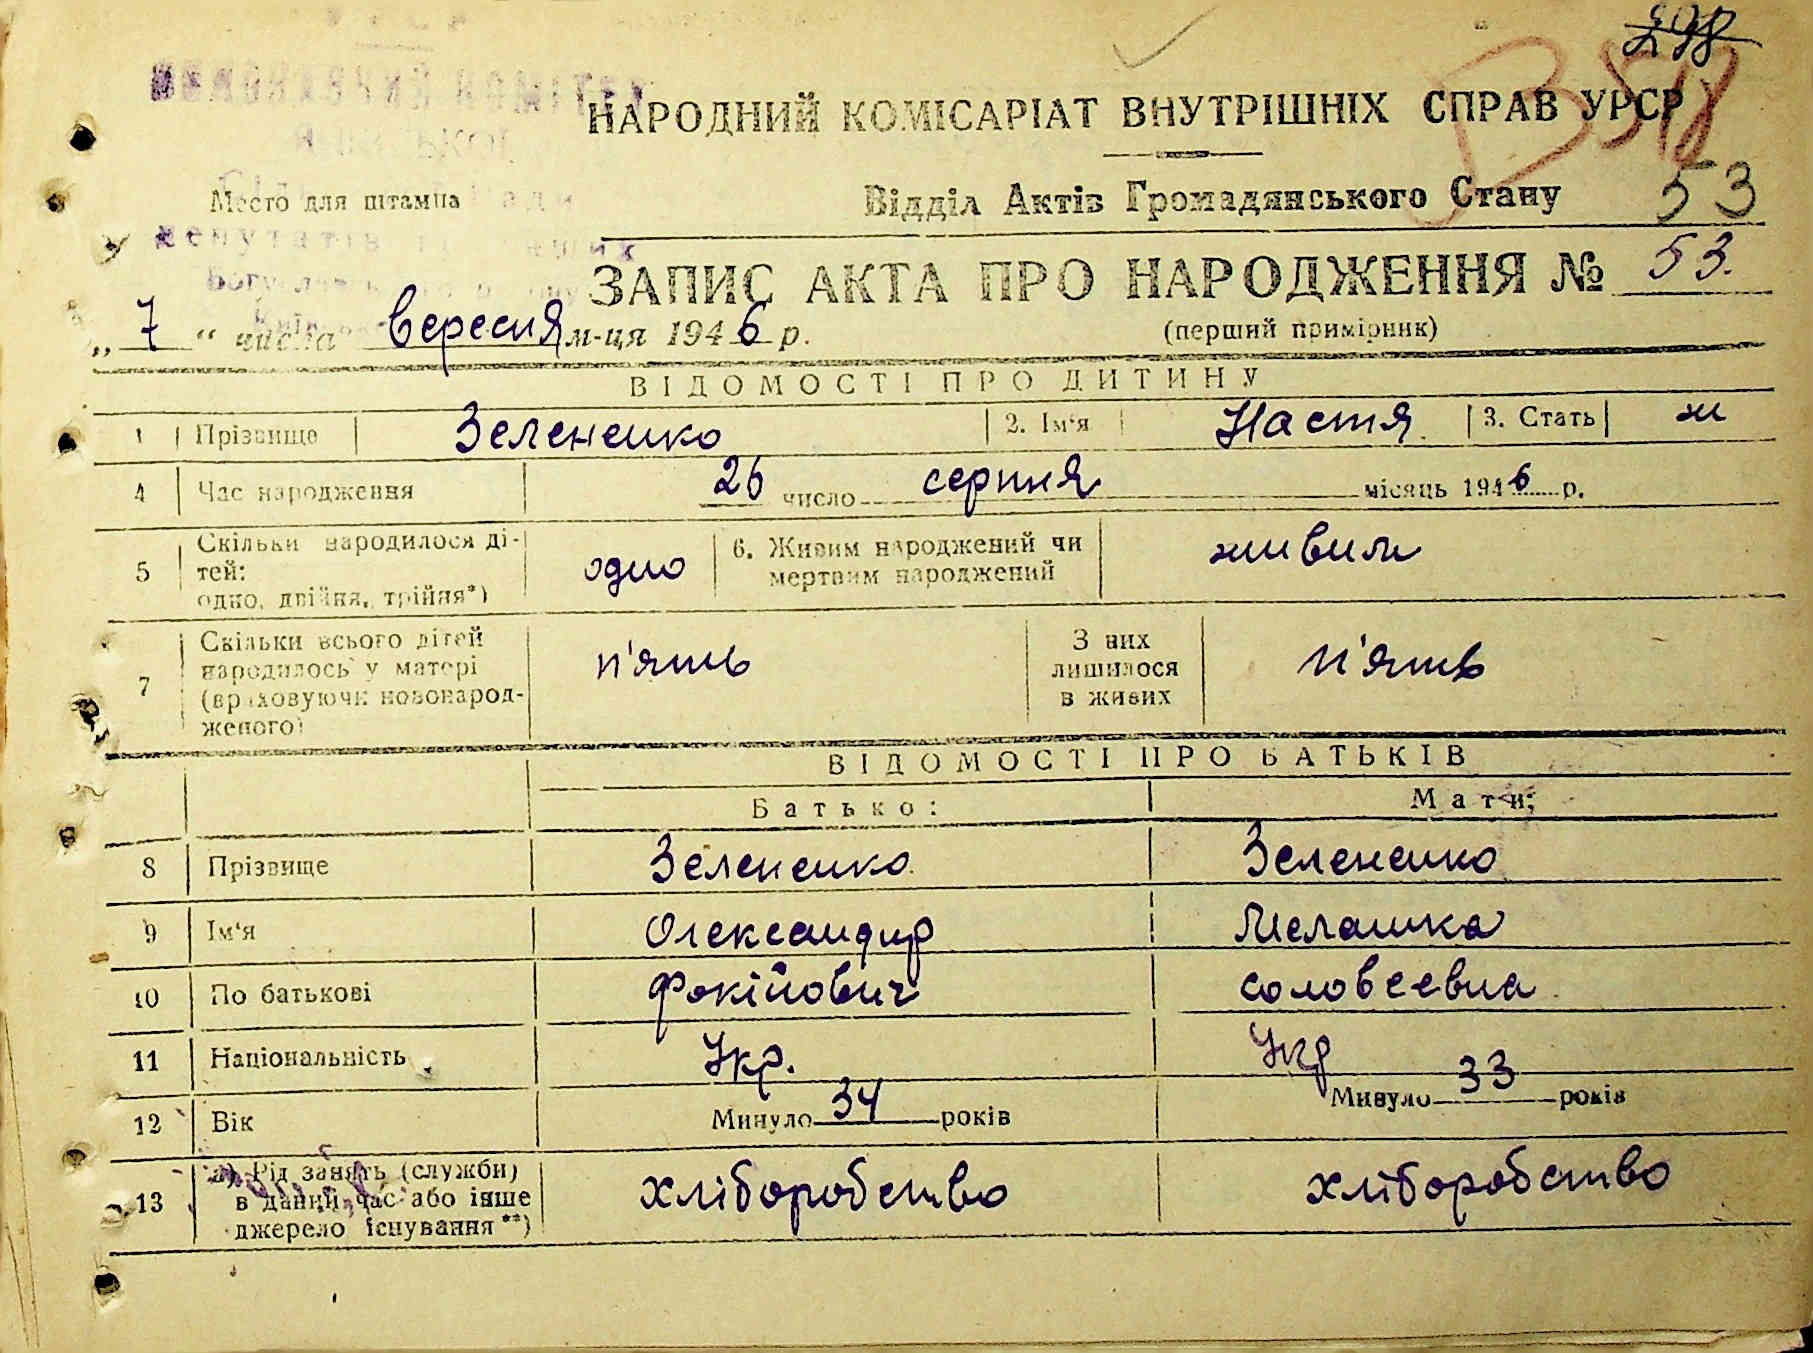 298
В 518
НАРОДНИЙ КОМІСАРІАТ ВНУТРІШНІХ СПРАВ УРСР
Место для штампа
Відділ Актів Громадянського Стану 53
ЗАПИС АКТА ПРО НАРОДЖЕННЯ № 53.
„ 7 “ числа вересня м-ця 1946 р. (перший примірник)
ВІДОМОСТІ ПРО ДИТИНУ
1 Прізвище Зелененко 2. Ім'я Настя 3. Стать ж
4 Час народження 26 число серпня місяць 1946 р.
5 Скільки народилося ді-
тей:
одно, двійня, трійня*) одно 6. Живим народжений чи
мертвим народжений живим
7 Скільки всього дітей
народилось у матері
(враховуючи новонарод-
женого) п'ять З них
лишилося
в живих п'ять
ВІДОМОСТІ ПРО БАТЬКІВ
Батько: Мати:
8 Прізвище Зелененко Зелененко
9 Ім'я Олександр Мелашка
10 По батькові Фокійович Соловеевна
11 Національність Укр. Укр
12 Вік Минуло 34 років Минуло 33 років
13 а) Рід занять (служби)
в даний час або інше
джерело існування **) хліборобство хліборобство